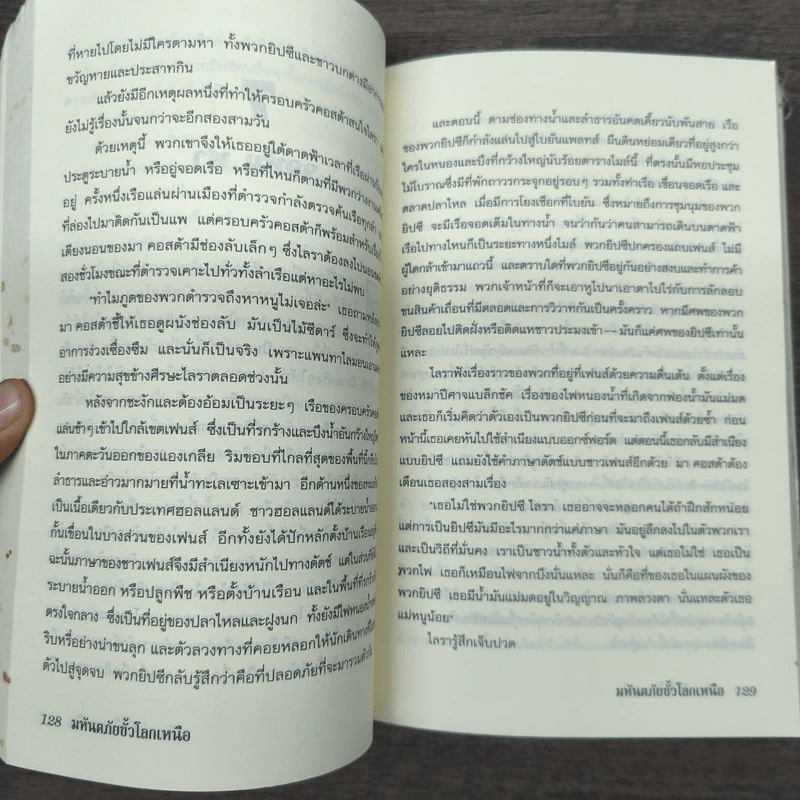 ที่หายไปโดยไม่มีใครตามหา ทั้งพวกยิปซีและชาวบกต่างมีอาการ
ขวัญหายและประสาทกิน
แล้วยังมีอีกเหตุผลหนึ่งที่ทำให้ครอบครัวคอสต้าสนใจไลรา
ยังไม่รู้เรื่องนั้นจนกว่าจะอีกสองสามวัน
ด้วยเหตุนี้ พวกเขาจึงให้เธออยู่ใต้ดาดฟ้าเวลาที่เรือผ่าน
ประตูระบายน้ำ หรืออู่จอดเรือ หรือที่ไหนก็ตามที่มีพวกว่างงาน
อยู่ ครั้งหนึ่งเรือแล่นผ่านเมืองที่ตำรวจกำลังตรวจค้นเรือทุกลำ
ที่ล่องไปมาติดกันเป็นแพ แต่ครอบครัวคอสต้าก็พร้อมสำหรับ
เตียงนอนของมา คอสต้ามีช่องลับเล็กๆ ซึ่งไลราต้องลงไปนอน
สองชั่วโมงขณะที่ตำรวจเคาะไปทั่วทั้งลำเรือแต่หาอะไรไม่พบ
"ทำไมภูตของพวกตำรวจถึงหาหนูไม่เจอล่ะ" เธอถาม
มา คอสต้าชี้ให้เธอดูผนังช่องลับ มันเป็นไม้ซีดาร์ ซึ่งจะทำให้
อาการง่วงเซื่องซึม และนั่นก็เป็นจริง เพราะแพนทาไลมอน
อย่างมีความสุขข้างศีรษะไลราตลอดช่วงนั้น
หลังจากชะงักและต้องอ้อมเป็นระยะๆ เรือของครอบครัว
แล่นช้าๆ เข้าไปใกล้เขตเฟนส์ ซึ่งเป็นที่รกร้างและบึงน้ำอันกว้างใหญ่
ในภาคตะวันออกของแองเกลีย ริมขอบที่ไกลที่สุดของพื้นที่นี้
ลำธารและอ่าวมากมายที่น้ำทะเลเซาะเข้ามา อีกด้านหนึ่งของ
เป็นเนื้อเดียวกับประเทศฮอลแลนด์ ชาวฮอลแลนด์ได้ระบายน้ำ
กั้นเขื่อนในบางส่วนของเฟนส์ อีกทั้งยังได้ปักหลักตั้งบ้านเรือนอยู่
ฉะนั้นภาษาของชาวเฟนส์จึงมีสำเนียงหนักไปทางดัตช์ แต่ในส่วนที่
ระบายน้ำออก หรือปลูกพืช หรือตั้งบ้านเรือน และในพื้นที่ที่
ตรงใจกลาง ซึ่งเป็นที่อยู่ของปลาไหลและฝูงนก ทั้งยังมีไฟหนองน้ำ
ริบหรี่อย่างน่าขนลุก และตัวลวงทางที่คอยหลอกให้นักเดินทาง
ตัวไปสู่จุดจบ พวกยิปซีกลับรู้สึกว่าคือที่ปลอดภัยที่จะมารวมตัว
128 มหันตภัยขั้วโลกเหนือ
และตอนนี้ ตามช่องทางน้ำและลำธารอันคดเคี้ยวนับพันสาย เรือ
ของพวกยิปซีก็กำลังแล่นไปสู่ไบยันแพลทส์ ผืนดินหย่อมเดียวที่อยู่สูงกว่า
ใครในหนองและบึงที่กว้างใหญ่นับร้อยตารางไมล์นี้ ที่ตรงนั้นมีหอประชุม
ไม้โบราณซึ่งมีที่พักถาวรกระจุกอยู่รอบๆ รวมทั้งท่าเรือ เขื่อนจอดเรือ และ
ตลาดปลาไหล เมื่อมีการโยงเชือกที่ไบยัน ซึ่งหมายถึงการชุมนุมของพวก
ยิปซี จะมีเรือจอดเต็มในทางน้ำ จนว่ากันว่าคนสามารถเดินบนดาดฟ้า
เรือไปทางไหนก็เป็นระยะทางหนึ่งไมล์ พวกยิปซีปกครองแถบเฟนส์ ไม่มี
ผู้ใดกล้าเข้ามาแถวนี้ และตราบใดที่พวกยิปซีอยู่กันอย่างสงบและทำการค้า
อย่างยุติธรรม พวกเจ้าหน้าที่ก็จะเอาหูไปนาเอาตาไปไร่กับการลักลอบ
ขนสินค้าเถื่อนที่มีตลอดและการวิวาทกันเป็นครั้งคราว หากมีศพของพวก
ยิปซีลอยไปติดฝั่งหรือติดแหชาวประมงเข้า--มันก็แค่ศพของยิปซีเท่านั้น
แหละ
ไลราฟังเรื่องราวของพวกที่อยู่ที่เฟนส์ด้วยความตื่นเต้น ตั้งแต่เรื่อง
ของหมาปีศาจแบล็กชัค เรื่องของไฟหนองน้ำที่เกิดจากฟองน้ำมันแม่มด
และเธอก็เริ่มคิดว่าตัวเองเป็นพวกยิปซีก่อนที่จะมาถึงเฟนส์ด้วยซ้ำ ก่อน
หน้านี้เธอเคยหันไปใช้สำเนียงแบบออกซ์ฟอร์ด แต่ตอนนี้เธอกลับมีสำเนียง
แบบยิปซี แถมยังใช้คำภาษาดัตช์แบบชาวเฟนส์อีกด้วย มา คอสต้าต้อง
เตือนเธอสองสามเรื่อง
"เธอไม่ใช่พวกยิปซี ไลรา เธออาจจะหลอกคนได้ถ้าฝึกสักหน่อย
แต่การเป็นยิปซีมันมีอะไรมากกว่าแค่ภาษา มันอยู่ลึกลงไปในตัวพวกเรา
และเป็นวิถีที่มั่นคง เราเป็นชาวน้ำทั้งตัวและหัวใจ แต่เธอไม่ใช่ เธอเป็น
พวกไฟ เธอก็เหมือนไฟจากบึงนั่นแหละ นั่นก็คือที่ของเธอในแผนผังของ
พวกยิปซี เธอมีน้ำมันแม่มดอยู่ในวิญญาณ ภาพลวงตา นั่นแหละตัวเธอ
แม่หนูน้อย"
ไลรารู้สึกเจ็บปวด
มหันตภัยขั้วโลกเหนือ 129